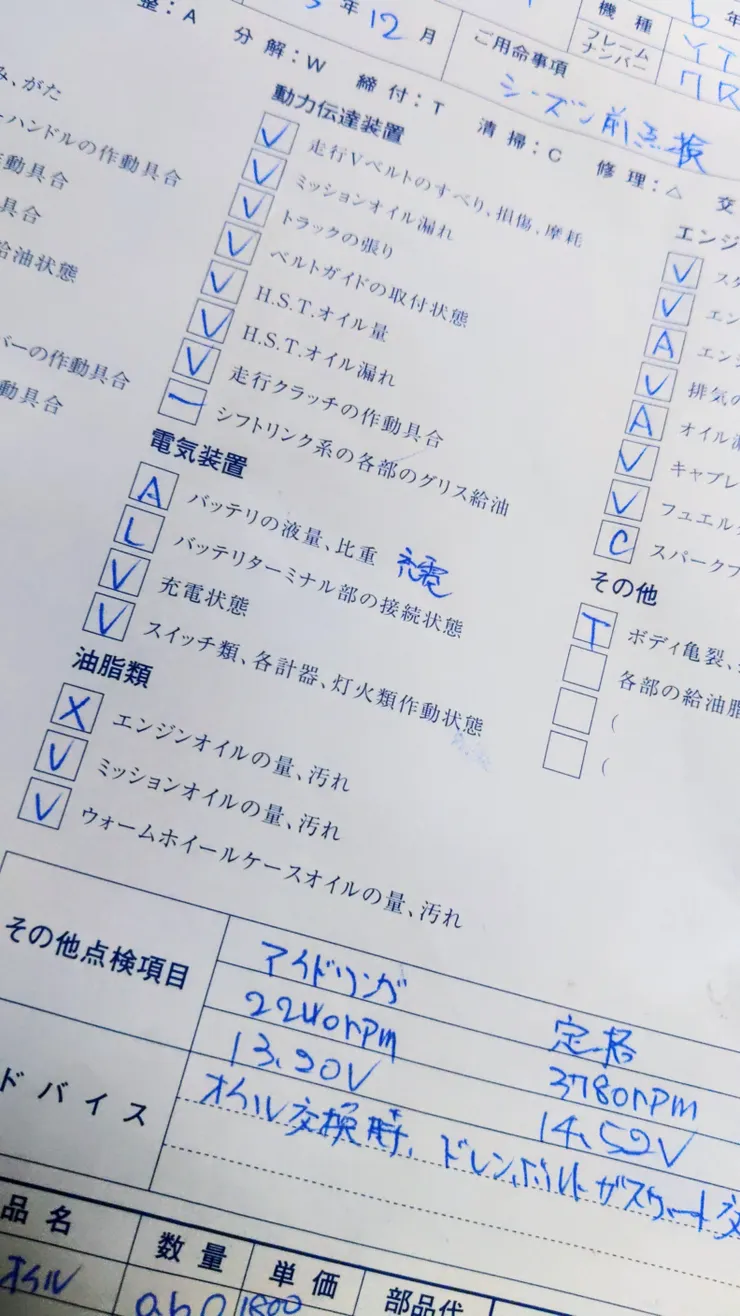 年12月
機種
6年
フレーム
ナンバー
ご用命事項
シーズン前点検
整：A 分解：W 締付：T 清掃：C 修理：△ 交
み、がた
ーハンドルの作動具合
作動具合
具合
給油状態
バーの作動具合
動具合
動力伝達装置
V 走行Vベルトのすべり、損傷、摩耗
V ミッションオイル漏れ
V トラックの張り
V ベルトガイドの取付状態
V H.S.T.オイル量
V H.S.T.オイル漏れ
V 走行クラッチの作動具合
ー シフトリンク系の各部のグリス給油
電気装置
A バッテリの液量、比重 充電
L バッテリターミナル部の接続状態
V 充電状態
V スイッチ類、各計器、灯火類作動状態
油脂類
X エンジンオイルの量、汚れ
V ミッションオイルの量、汚れ
V ウォームホイールケースオイルの量、汚れ
エンジ
V スタ
V エン
A エンジ
V 排気の
A オイル漏
V キャブレ
V フュエル
C スパークプ
その他
T ボディ亀裂、
各部の給油脂
（
（
その他点検項目
アイドリング 定格
2240rpm 3780rpm
13.20V 14.52V
ドバイス
オイル交換時、ドレンボルトガスケット交
品名 数量 単価 部品代
オイル 1800